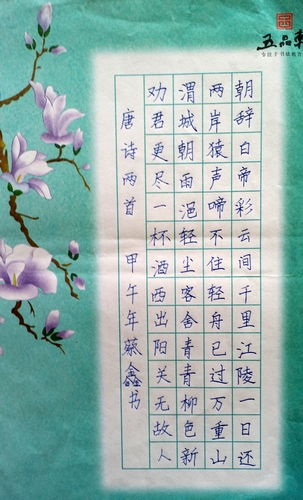 五品轩
朝辞白帝彩云间千里江陵一日还
两岸猿声啼不住轻舟已过万重山
渭城朝雨浥轻尘客舍青青柳色新
劝君更尽一杯酒西出阳关无故人
唐诗两首 甲午年蔡鑫书